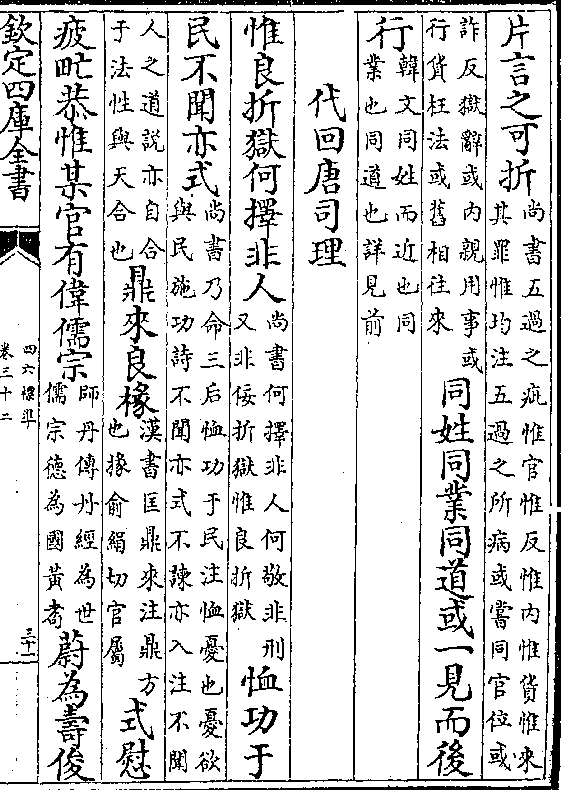 片言之可折尚書五過之疵惟官惟反惟内惟貨惟來其罪惟均注五過之所病或嘗同官位或
詐反獄辭或内親用事或行貨枉法或舊相往來同姓同業同道或一見而後
行韓文同姓而近也同業也同道也詳見前
代回唐司理
惟良折獄何擇非人尚書何擇非人何敬非刑又非佞折獄惟良折獄恤功于
民不聞亦式尚書乃命三后恤功于民注恤憂也憂欲與民施功詩不聞亦式不諫亦入注不聞
人之道說亦自合于法性與天合也鼎來良椽漢書匡鼎來注鼎方也掾俞絹切官屬式慰
疲甿恭惟某官有偉儒宗師丹傳丹經為世儒宗德為國黃耉蔚為壽俊
欽定四庫全書
四六標準
卷三十二
三十一